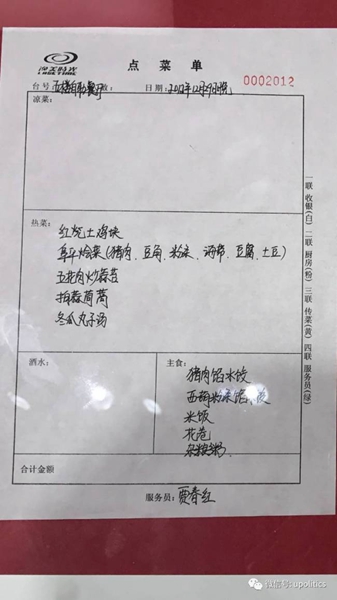 点菜单
台号: 五楼自助餐厅 数: 日期: 2012年12月29日晚 0002012
凉菜:
热菜:
红烧土鸡块
阜平烩菜(猪肉、豆角、粉条、海带、豆腐、土豆)
五花肉炒蒜苔
拍蒜茼蒿
冬瓜丸子汤
酒水:
主食:
猪肉馅水饺
西葫粉条馅
米饭
花卷
杂粮粥
合计金额
服务员: 贾春红
一联 收银(白) 二联 厨房(粉) 三联 传菜(黄) 四联 服务员(绿)
微信号: upolitics